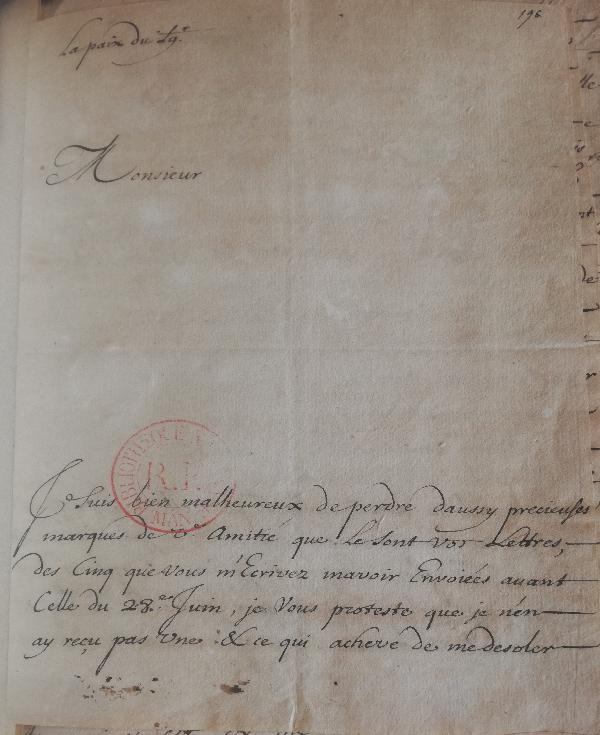 196
La paix du 19.e
Monsieur
BIBLIOTHEQUE
R.F.
Je Suis bien malheureux de perdre daussy precieuses
marques de v. Amitié que le sont vos Lettres,
des Cinq que vous m'Ecrivez mavoir Envoiées avant
Celle du 28.e Juin, je Vous proteste que je n'en
ay reçu pas Vne & ce qui acheve de me desoler